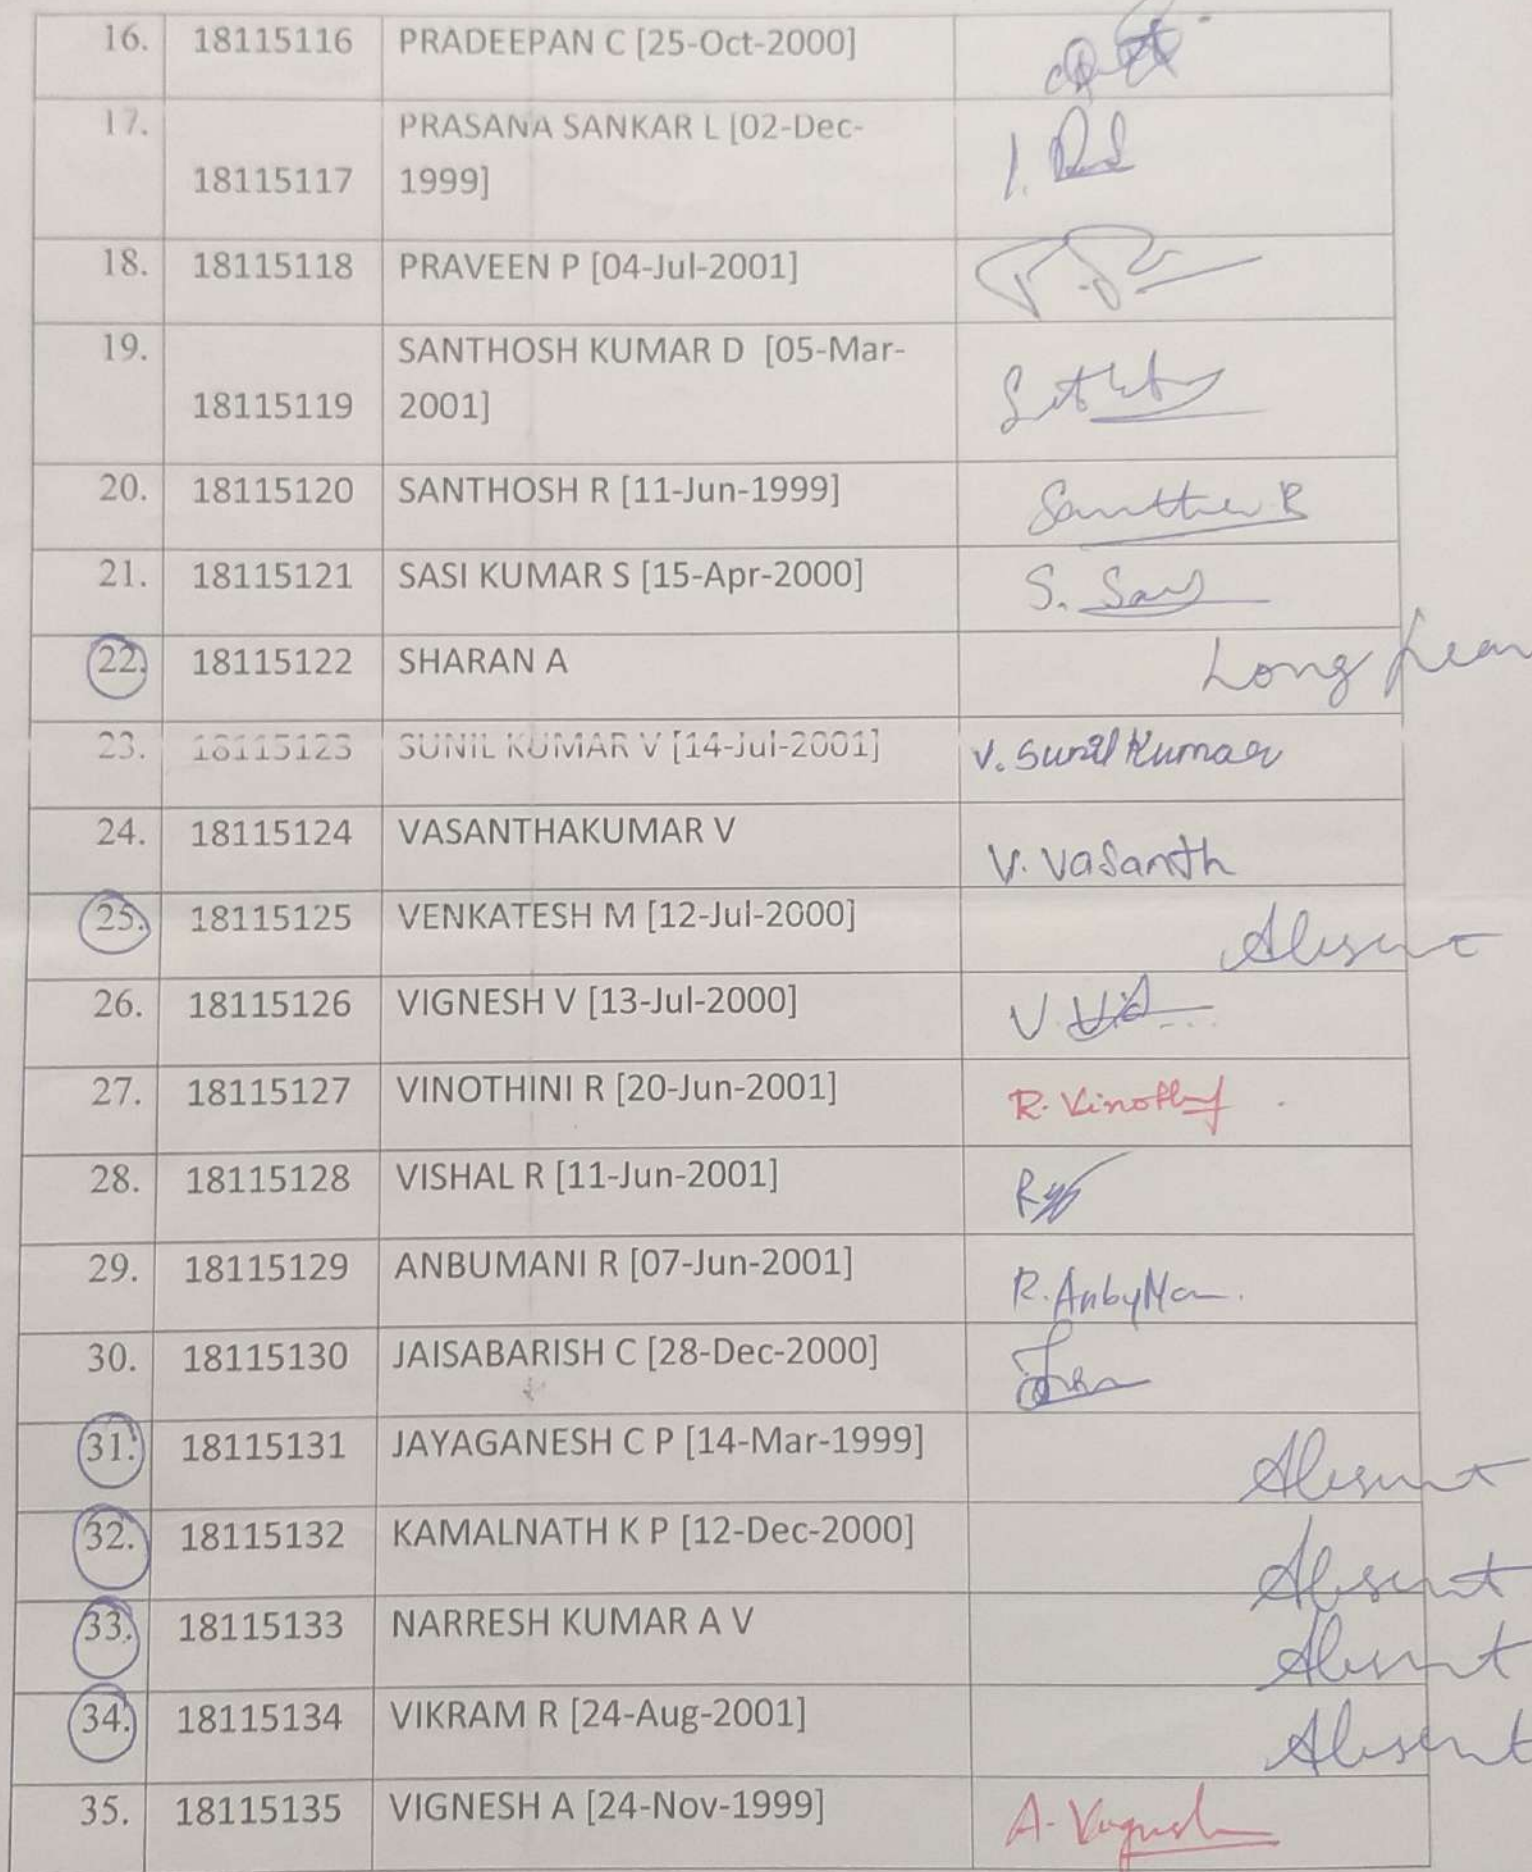 16. 18115116 PRADEEPAN C [25-Oct-2000]
17. PRASANA SANKAR L [02-Dec-
18115117 1999]
18. 18115118 PRAVEEN P [04-Jul-2001]
19. SANTHOSH KUMAR D [05-Mar-
18115119 2001]
20. 18115120 SANTHOSH R [11-Jun-1999]
21. 18115121 SASI KUMAR S [15-Apr-2000] S.
22. 18115122 SHARAN A Long
23. 18115123 SUNIL KUMAR V [14-Jul-2001] V. Sunil Kumar
24. 18115124 VASANTHAKUMAR V V. Vasanth
25. 18115125 VENKATESH M [12-Jul-2000] Absent
26. 18115126 VIGNESH V [13-Jul-2000] V.
27. 18115127 VINOTHINI R [20-Jun-2001] R.
28. 18115128 VISHAL R [11-Jun-2001]
29. 18115129 ANBUMANI R [07-Jun-2001] R.
30. 18115130 JAISABARISH C [28-Dec-2000]
31. 18115131 JAYAGANESH C P [14-Mar-1999] Absent
32. 18115132 KAMALNATH K P [12-Dec-2000] Absent
33. 18115133 NARRESH KUMAR A V Absent
34. 18115134 VIKRAM R [24-Aug-2001] Absent
35. 18115135 VIGNESH A [24-Nov-1999] A.